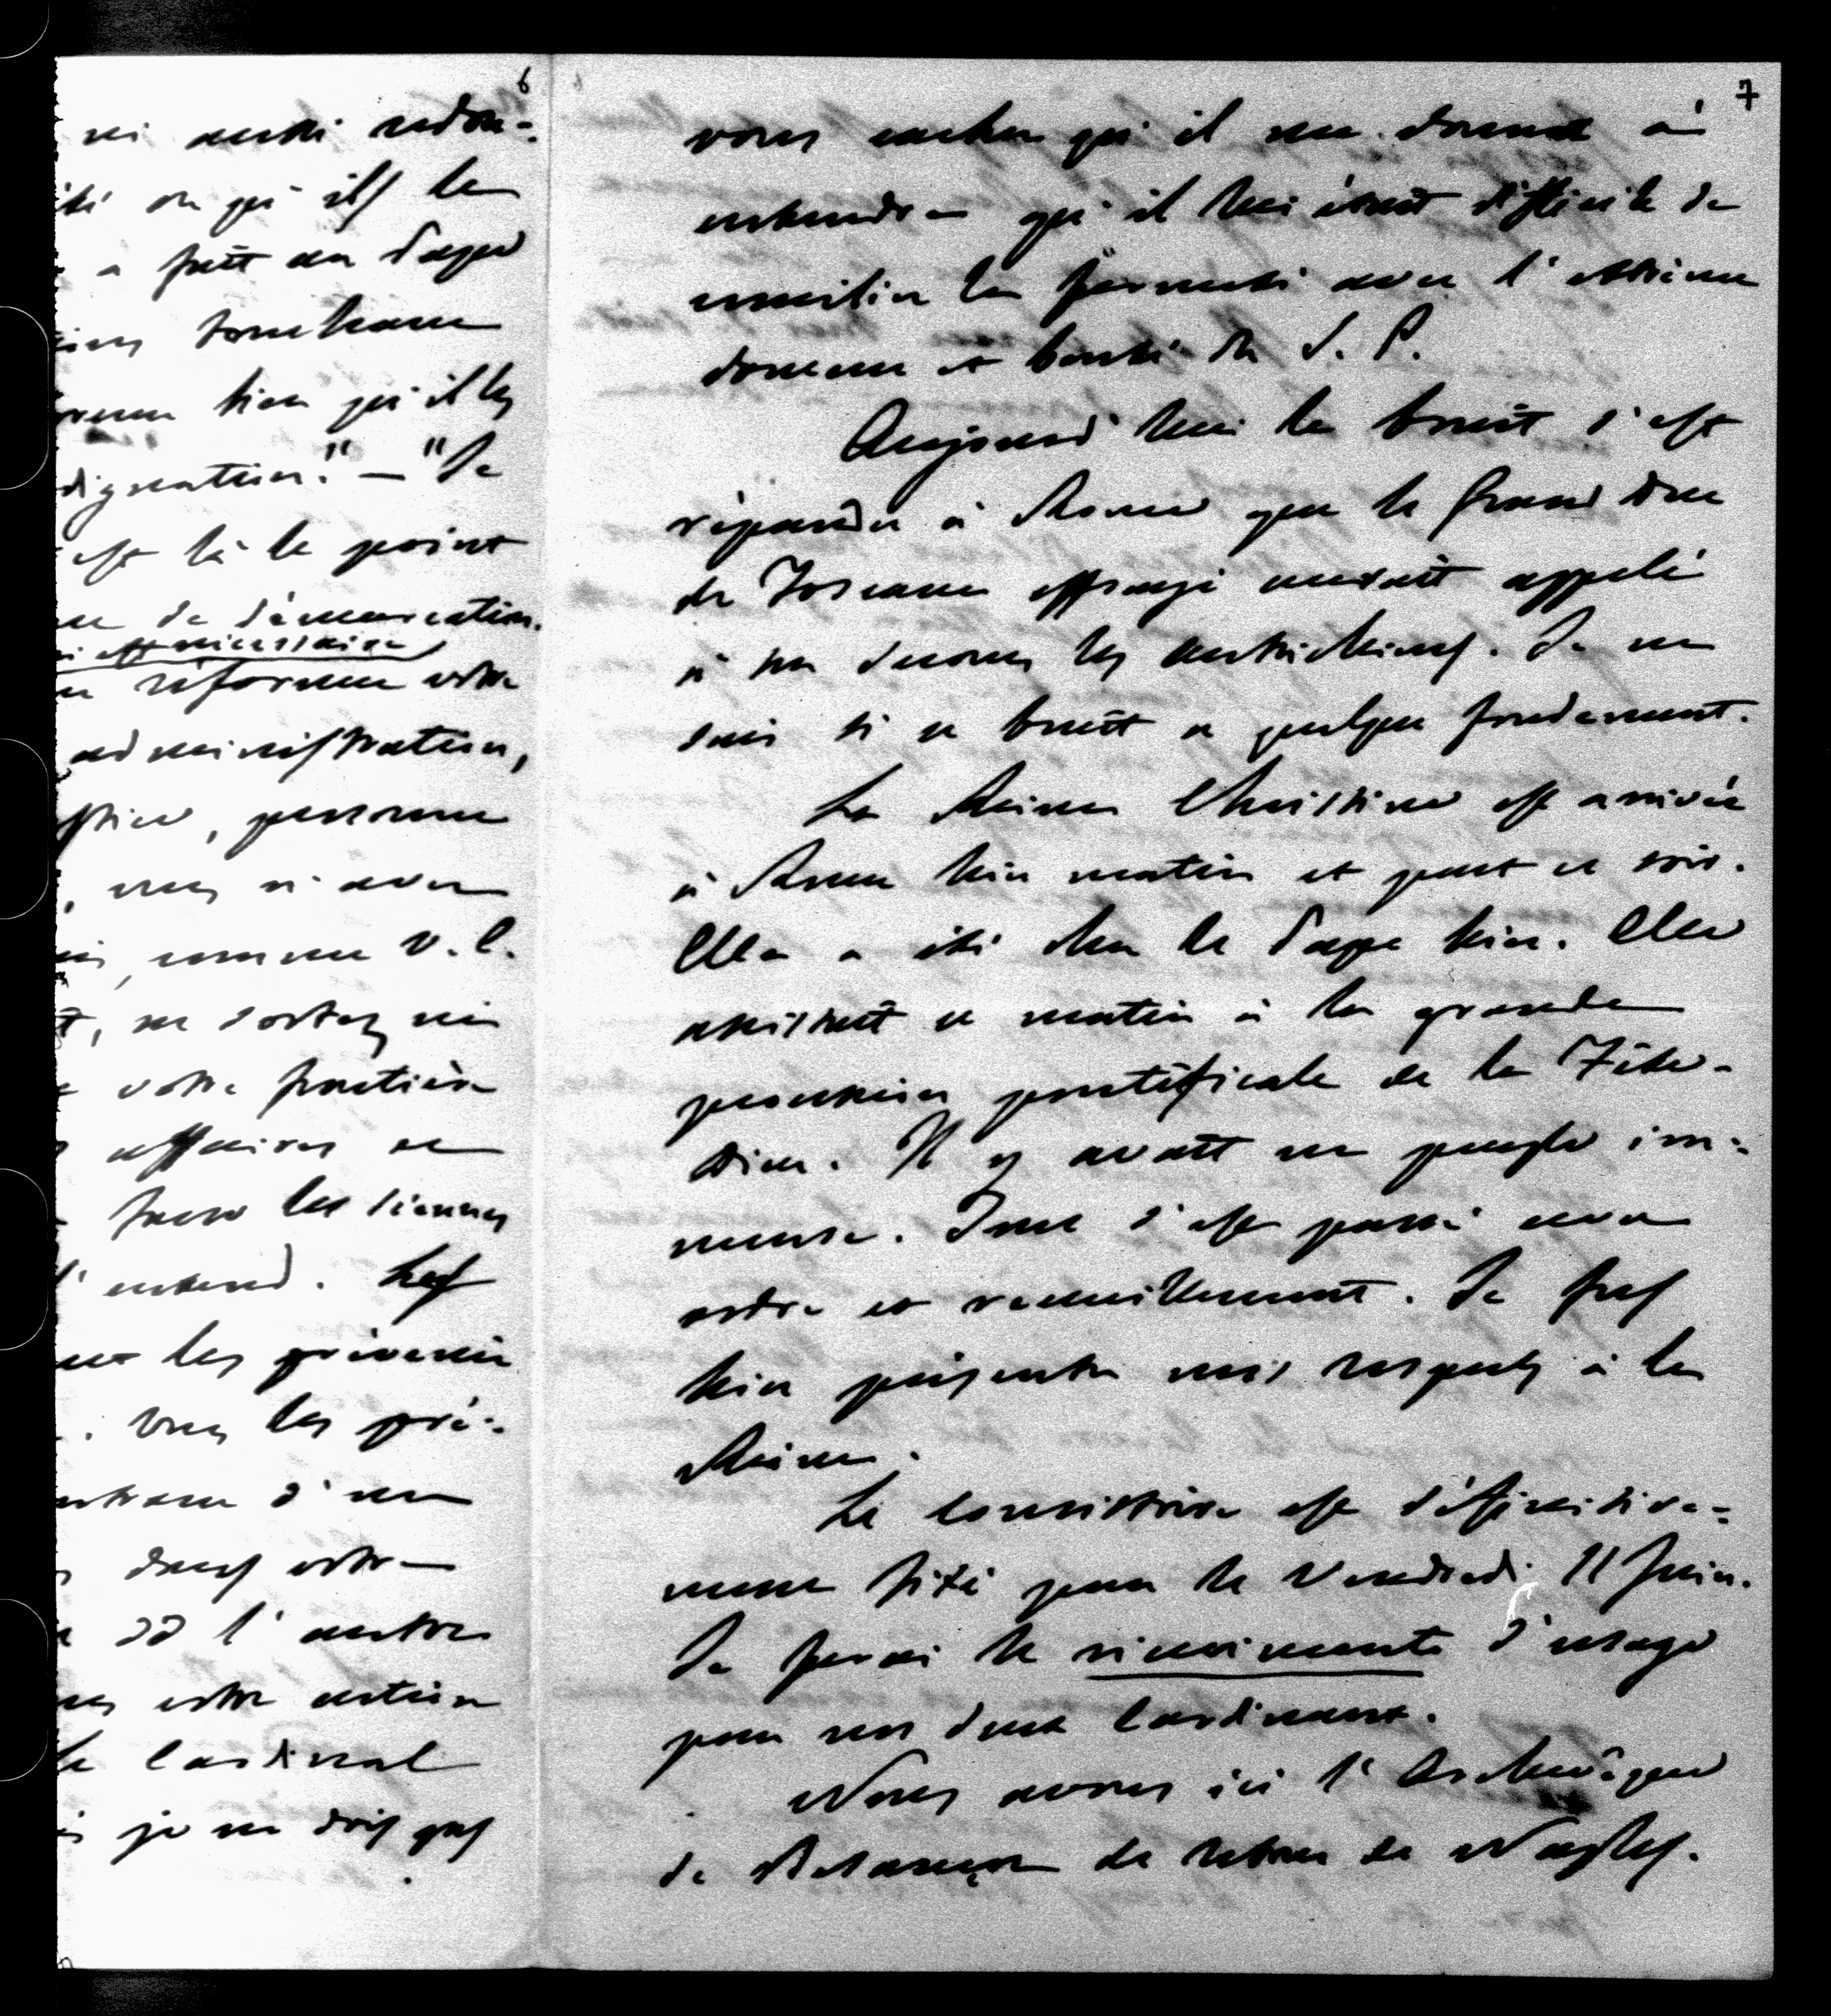 6
ni aussi redou-
ité ou qu'ils le
a fait au Pape
tombeau
bien qu'il les
dignation." — "Je
est là le point
de démarcation.
est nécessaire
réforme votre
administration,
personne
, vous n'avez
comme V. E.
, ne sortez ni
votre frontière
affaires
les siennes
l'entend. Les
les prévenir
. Vous les pré-
d'un
dans votre
l'autre
votre action
le Cardinal
je ne dois pas
7
vous cacher qu'il me donna à
entendre qu'il lui était difficile de
concilier la fermeté avec l'extrême
douceur et bonté du S. P.
Aujourd'hui le bruit s'est
répandu à Rome que le Grand Duc
de Toscane effrayé aurait appelé
à son secours les Autrichiens. Je ne
sais si ce bruit a quelque fondement.
La Reine Christine est arrivée
à Rome hier matin et part ce soir.
Elle a été chez le Pape hier. Elle
assistait ce matin à la grande
procession pontificale de la Fête-
Dieu. Il y avait un peuple im-
mense. Tout s'est passé avec
ordre et recueillement. Je fus
hier présenter mes respects à la
Reine.
Le Consistoire est définitive-
ment fixé pour le Vendredi 11 Juin.
Je ferai le ricevimento d'usage
pour nos deux Cardinaux.
Nous avons ici l'Archevêque
de Besançon de retour de Naples.